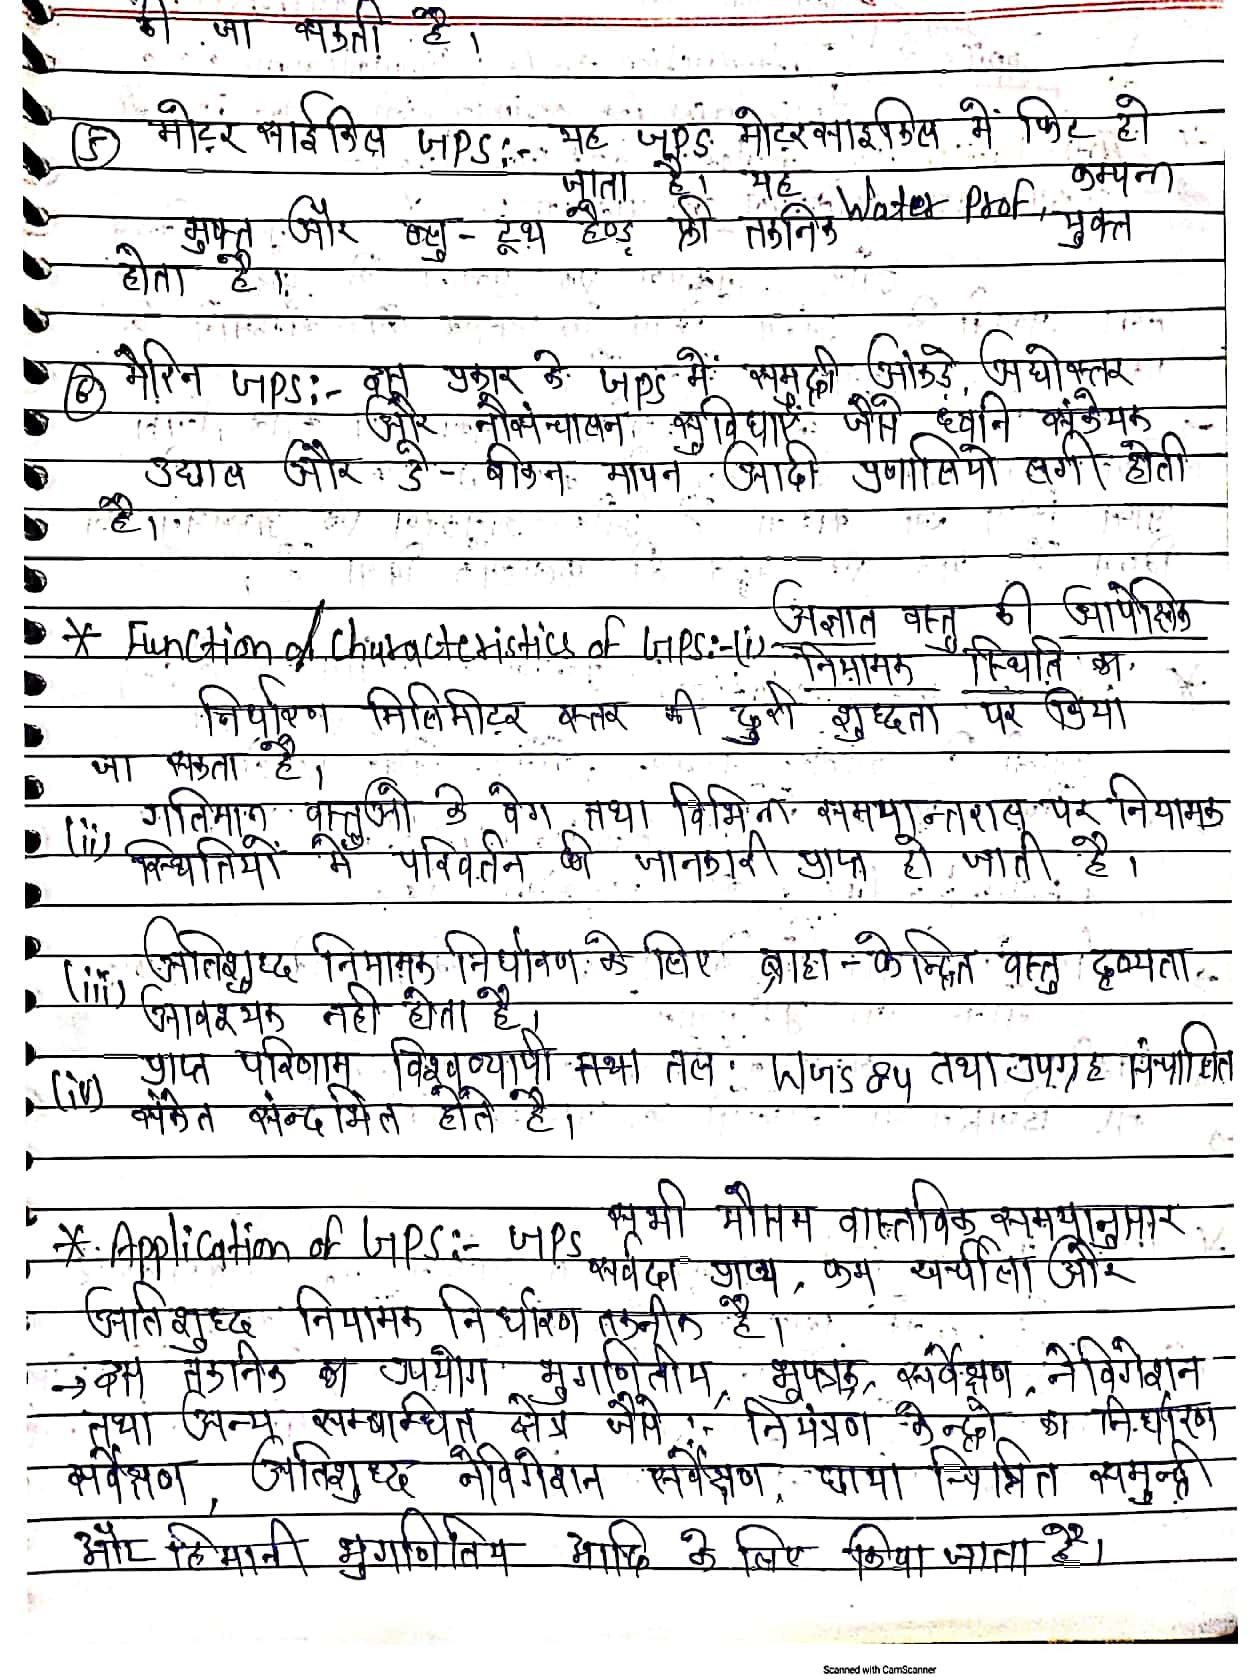 की जा सकती है।
⑤ मोटर साईकिल GPS:- यह GPS मोटरसाइकिल में फिट हो
जाता है। यह Water Prof, कम्पन्न
मुक्त और ब्लु-टूथ हैण्ड फ्री तकनिक युक्त
होता है।
⑥ मैरिन GPS:- इस प्रकार के GPS में समुद्री आंकड़े, अधोस्तर
और नौसंचालन सुविधाएँ जैसे ध्वनि संकेयक
उद्याल और डे-बीकन मापन आदी प्रणालियो लगी होती
है।
* Function of Characteristics of GPS:-(i) अज्ञात वस्तु की आपेक्षिक
नियामक स्थिति का
निर्धारण मिलिमीटर स्तर की दुरी शुध्दता पर किया
जा सकता है।
(ii) गतिमान वस्तुओ के वेग तथा विभिन्न समयान्तराल पर नियामक
स्थितियों में परिवर्तन की जानकारी प्राप्त हो जाती है।
(iii) अतिशुध्द नियामक निर्धारण के लिए ब्राहा-केन्द्रित वस्तु दृव्यता
आवश्यक नही होता है।
(iv) प्राप्त परिणाम विश्वव्यापी तथा तल: WGS 84 तथा उपग्रह संचालित
संकेत संन्दर्भित होते है।
* Application of GPS:- GPS सभी मौसम वास्तविक समयानुसार
सर्वदा प्राप्य, कम खर्चीला और
अतिशुध्द नियामक निर्धारण तकनीक है।
→ इस तकनिक का उपयोग भुगणितीय, भुपत्रक, सर्वेक्षण, नेविगेशन
तथा अन्य सम्बान्धित क्षेत्र जैसे:- नियंत्रण केन्द्रो का निर्धारण
सर्वेक्षण, अतिशुध्द नेविगेशन सर्वेक्षण, छाया चित्रित समुन्द्री
और हिमानी भुगणितिय आदि के लिए किया जाता है।
Scanned with CamScanner